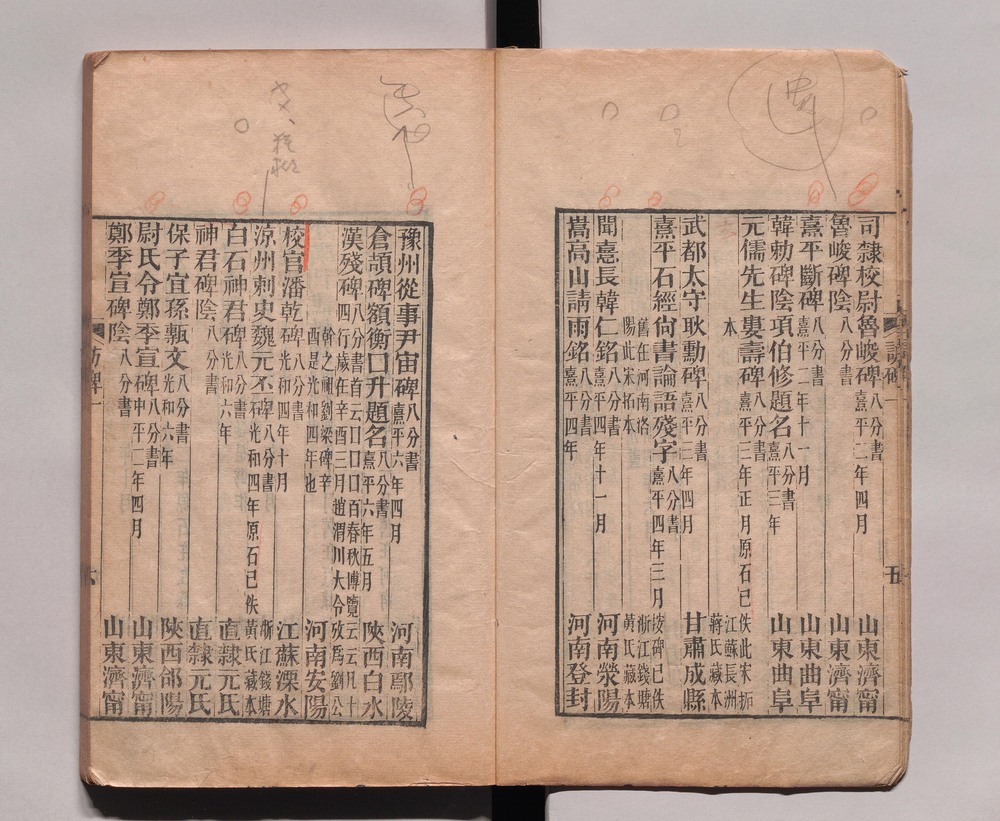 司隸校尉魯峻碑 八分書 熹平二年四月 山東濟甯
魯峻碑陰 八分書 山東濟甯
熹平斷碑 八分書 熹平二年十一月 山東曲阜
韓勑碑陰項伯修題名 八分書 熹平三年 山東曲阜
元儒先生婁壽碑 八分書 熹平三年正月原石已佚此宋拓
本 江蘇長洲蔣氏藏本
武都太守耿勳碑 八分書 熹平三年四月 甘肅成縣
熹平石經尚書論語殘字 八分書 熹平四年三月
舊在河南洛陽此宋拓本 浙江錢塘黃氏藏本
聞憙長韓仁銘 八分書 熹平四年十一月 河南滎陽
嵩高山請雨銘 八分書 熹平四年 河南登封
訪碑一
五
豫州從事尹宙碑 八分書 熹平六年四月 河南鄢陵
倉頡碑額衡口升題名 八分書 熹平六年五月 陝西白水
漢殘碑 八分書首云口口口百春秋博覽云云凡十四行歲在辛酉三月趙渭川大令攷為劉公
幹之祖劉梁碑辛酉是光和四年也 河南安陽
校官潘乾碑 八分書 光和四年十月 江蘇溧水
涼州刺史魏元丕碑 八分書 光和四年原石已佚 浙江錢塘黃氏藏本
白石神君碑 八分書 光和六年 直隸元氏
神君碑陰 八分書 直隸元氏
保子宜孫甎文 八分書 光和六年 陝西郃陽
尉氏令鄭季宣碑 八分書 中平二年四月 山東濟甯
鄭季宣碑陰 八分書 山東濟甯
訪碑一
六